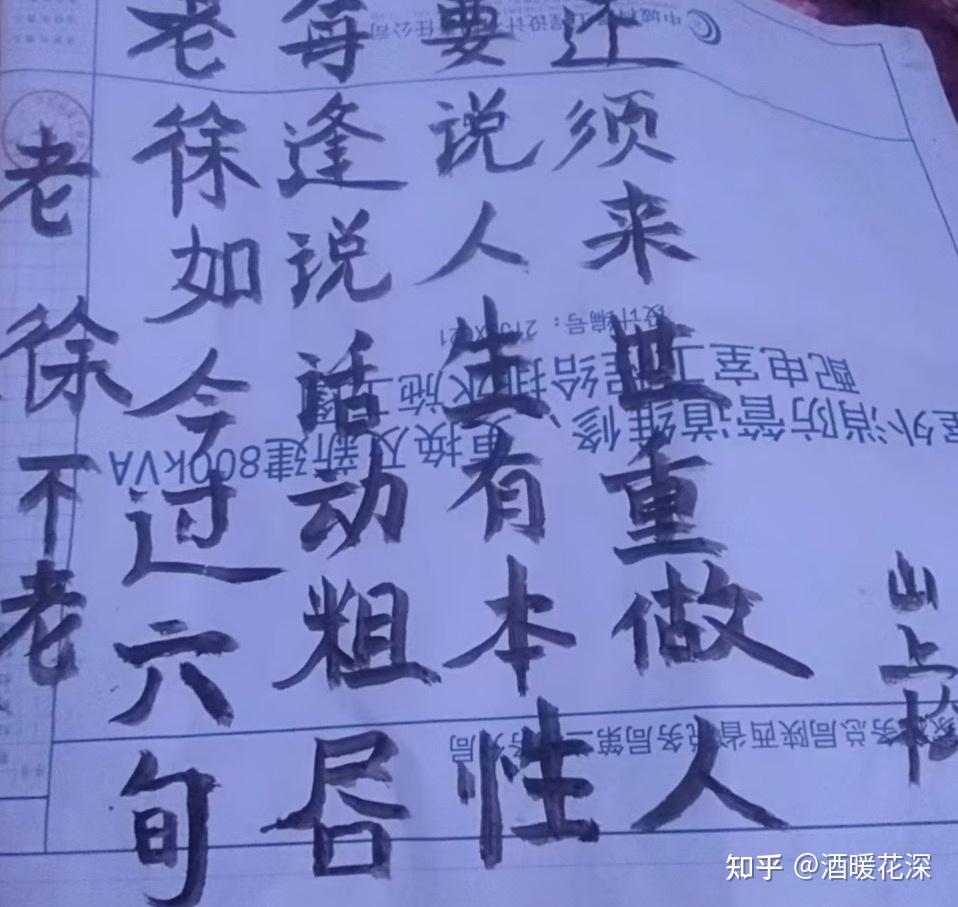 老徐不老
老徐如今过六旬
每逢说话动粗
要说人生有本性
还须来世重做人
山上松
务总局陕西省税务局第
室外消防管道维修、更换及新建800kVA
配电室工程给排水施工图
设计编号：
知乎 @酒暖花深